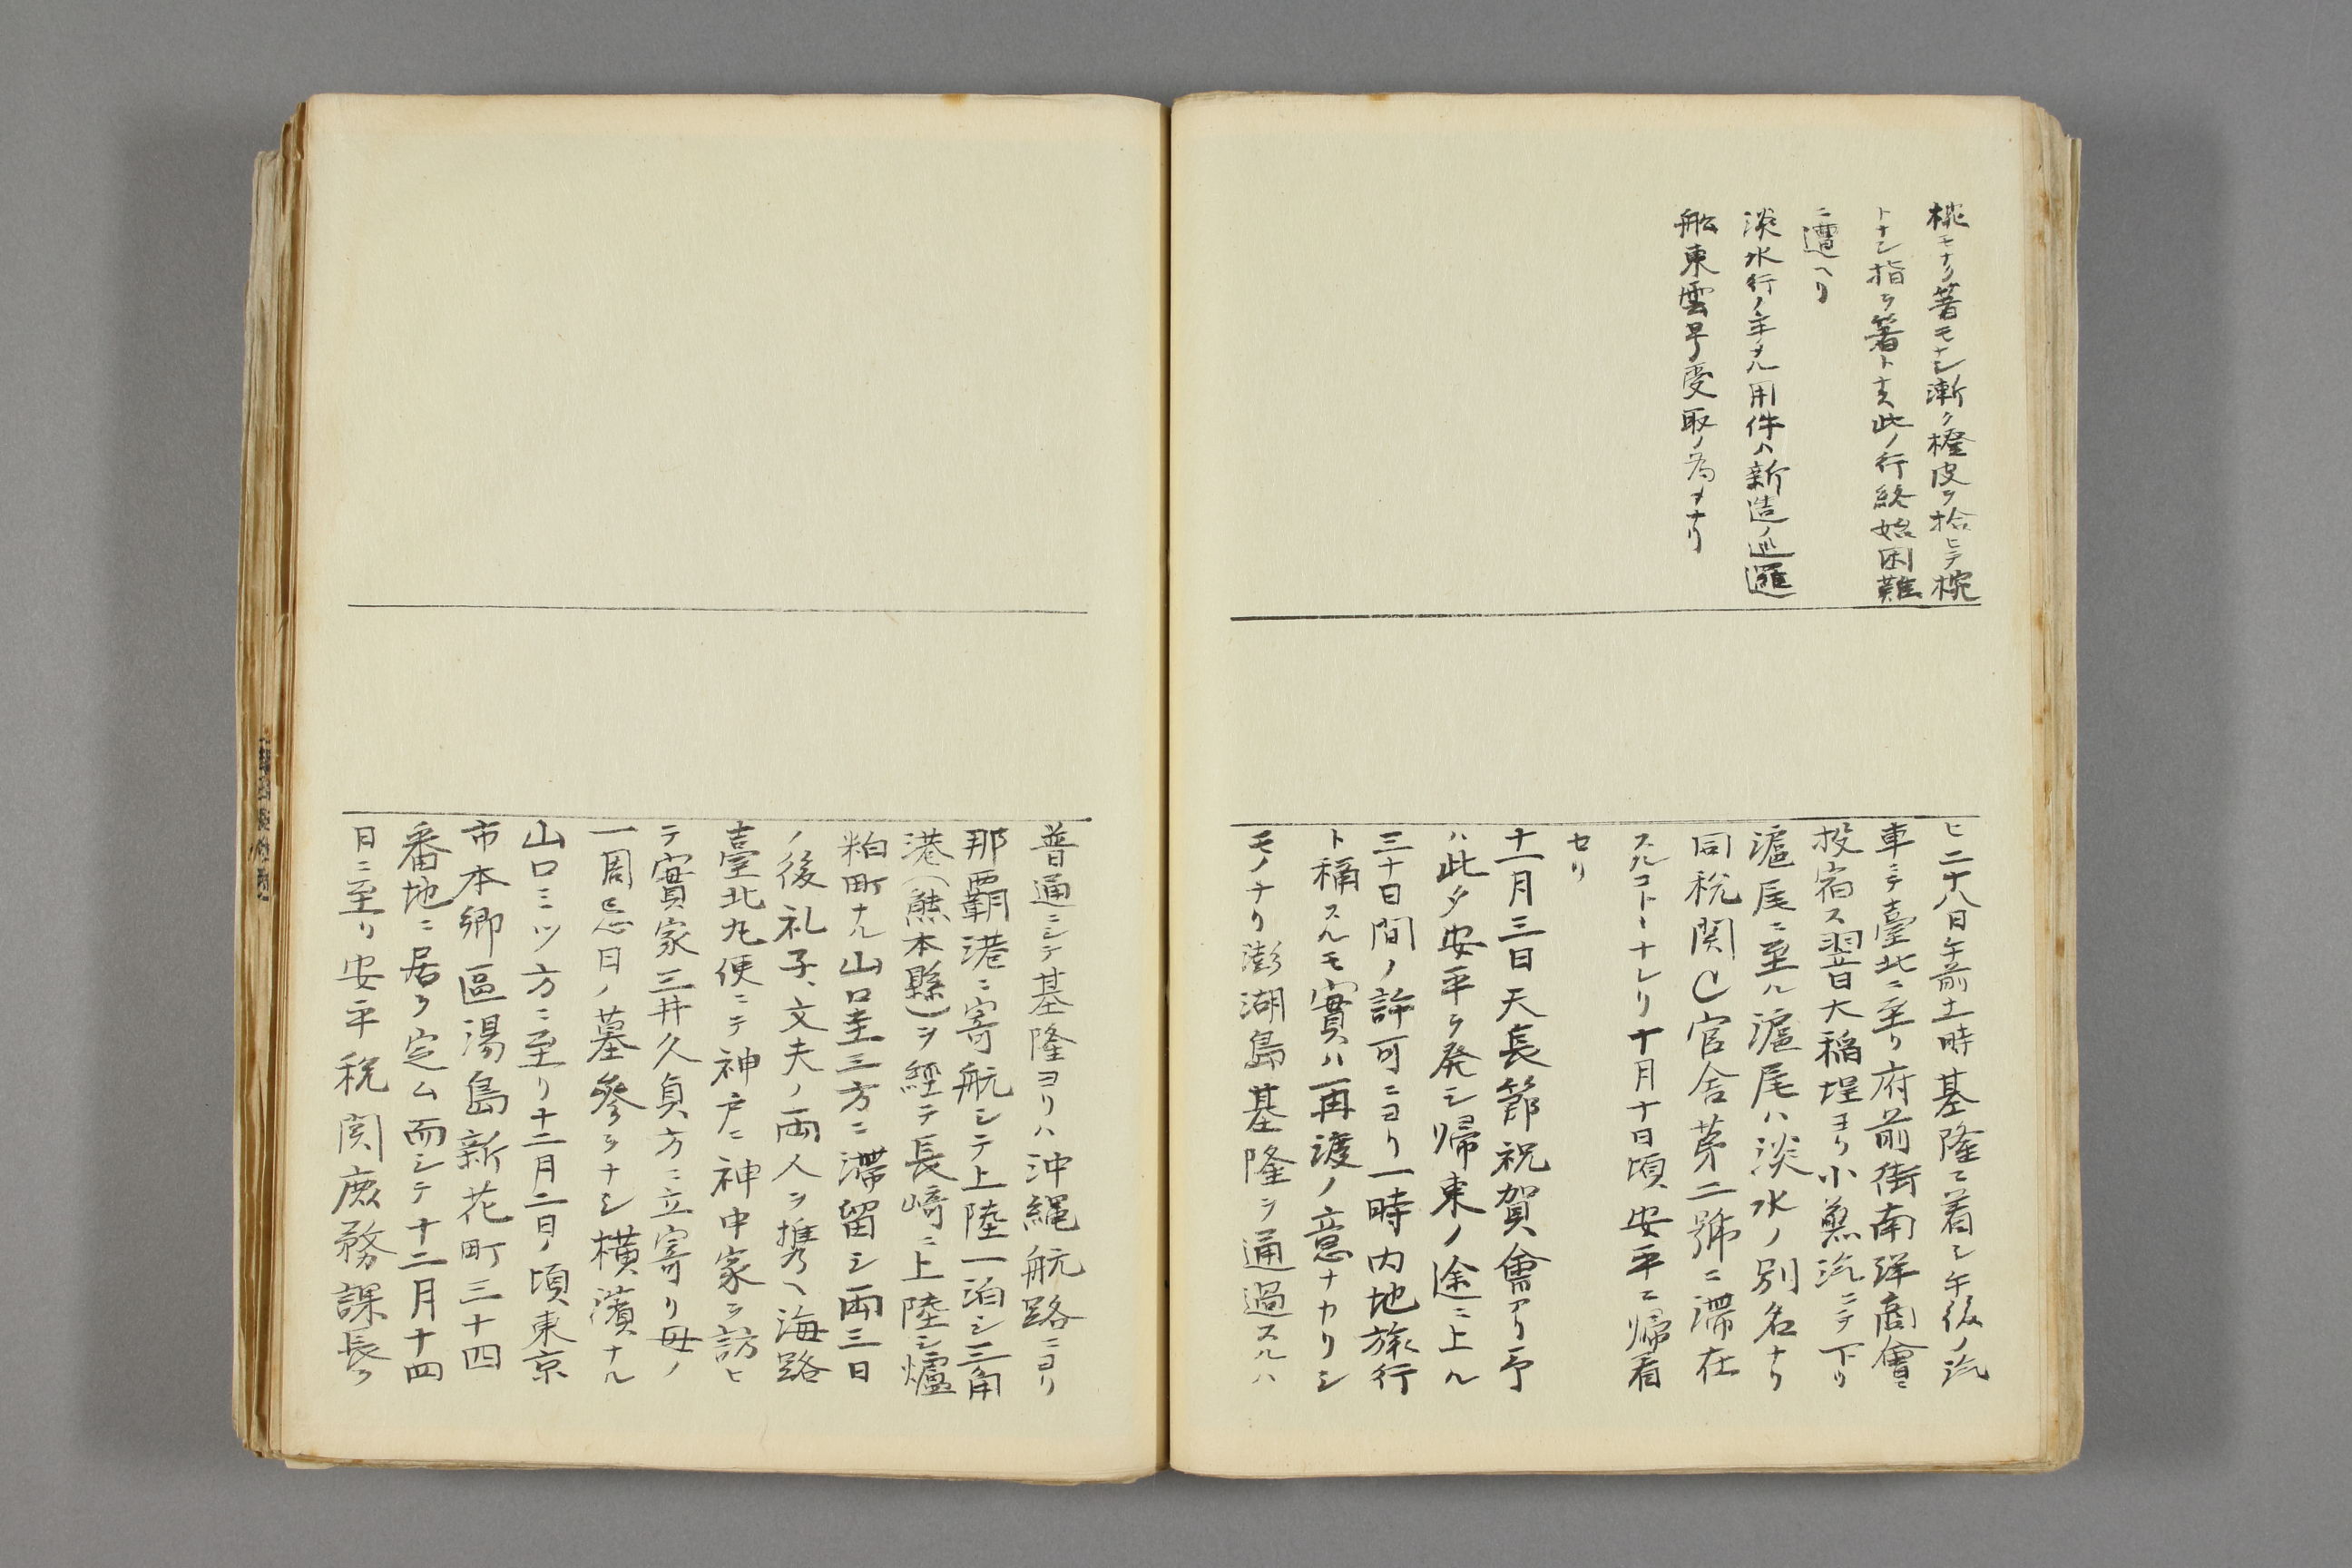 椀モナク箸モナシ漸ク橙皮ヲ拾ヒテ椀
トナシ指ヲ箸ト支此ノ行終始困難
ニ遭ヘリ
淡水行ノ主ナル用件ハ新造ノ巡邏
船東雲号受取ノ為メナリ
ヒ二十八日午前十一時基隆ニ着シ午後ノ汽
車ニテ臺北ニ至リ府前街南洋商會ニ
投宿ス翌日大稲埕ヨリ小蒸汽ニテ下リ
滬尾ニ至ル滬尾ハ淡水ノ別名ナリ
同税関C官舎第二號ニ滞在
スルコトヽナレリ十月十日頃安平ニ帰着
セリ
十一月三日天長節祝賀會アリ予
ハ此夕安平ヲ発シ帰東ノ途ニ上ル
三十日間ノ許可ニヨリ一時内地旅行
ト稱スルモ實ハ再渡ノ意ナカリシ
モノナリ澎湖島基隆ヲ通過スルハ
普通ニシテ基隆ヨリハ沖縄航路ニヨリ
那覇港ニ寄航シテ上陸一泊シ三角
港(熊本縣)ヲ經テ長崎ニ上陸シ爐
粕町ナル山口圭三方ニ滞留シ両三日
ノ後礼子、文夫ノ両人ヲ携ヘ海路
臺北丸便ニテ神戸ニ神中家ヲ訪ヒ
テ實家三井久負方ニ立寄リ母ノ
一周忌日ノ墓參ヲナシ横濱ナル
山口ミツ方ニ至リ十二月二日ノ頃東京
市本郷區湯島新花町三十四
番地ニ居ヲ定ム而シテ十二月十四
日ニ至リ安平税関庶務課長ヲ